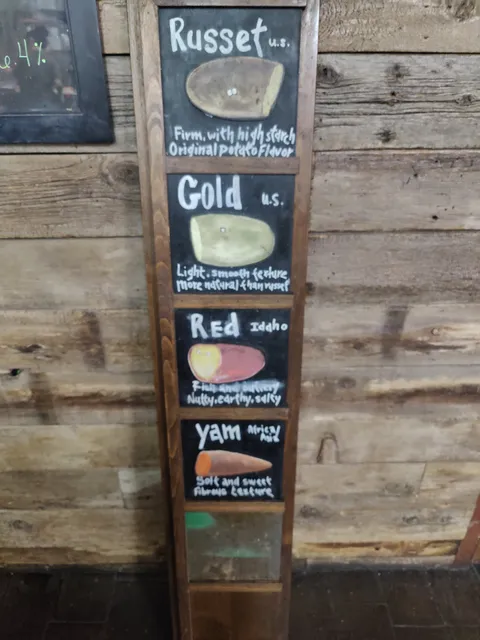 e.4%
Russet U.S.
Firm, with high starch
Original potato Flavor
Gold U.S.
Light, smooth texture
More natural than russet
Red Idaho
and buttery
Nutty, earthy, salty
Yam Africa/
Asia
Soft and sweet
Fibrous texture